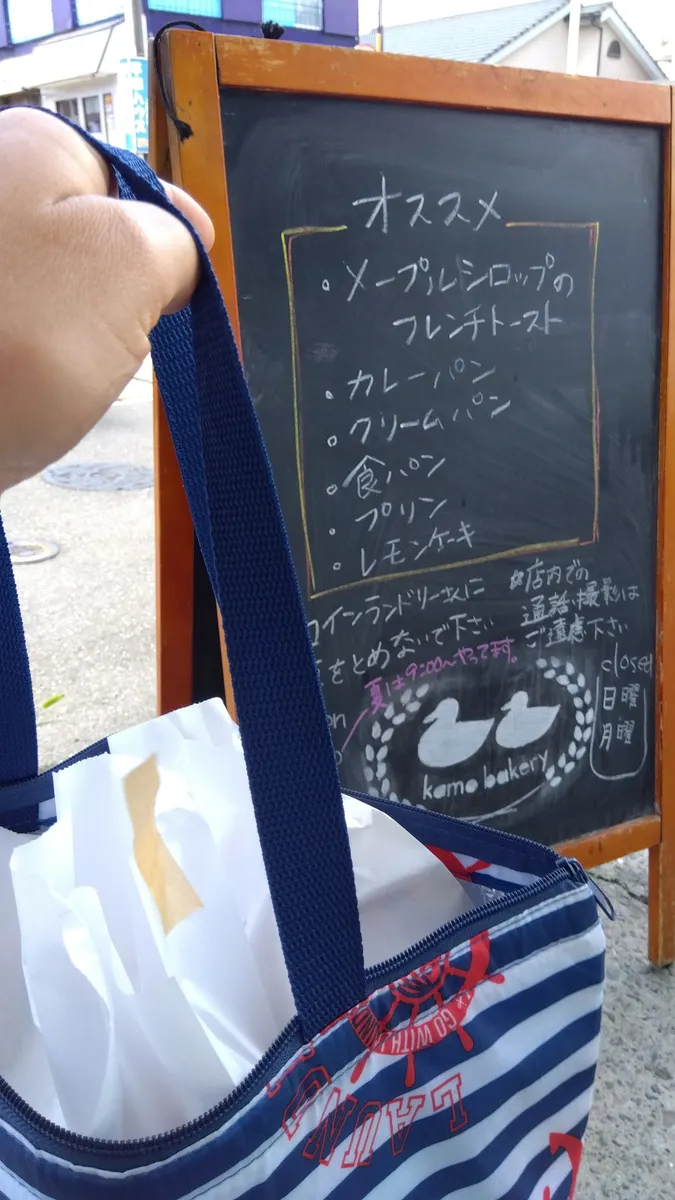 オススメ
・メープルシロップの
フレンチトースト
・カレーパン
・クリームパン
・食パン
・プリン
・レモンケーキ
コインランドリーさんに
をとめないで下さい
※店内での
通話、撮影は
ご遠慮下さい
夏は9:00〜やってます。
closed
日曜
月曜
kamo bakery
GO WITH
LAUN